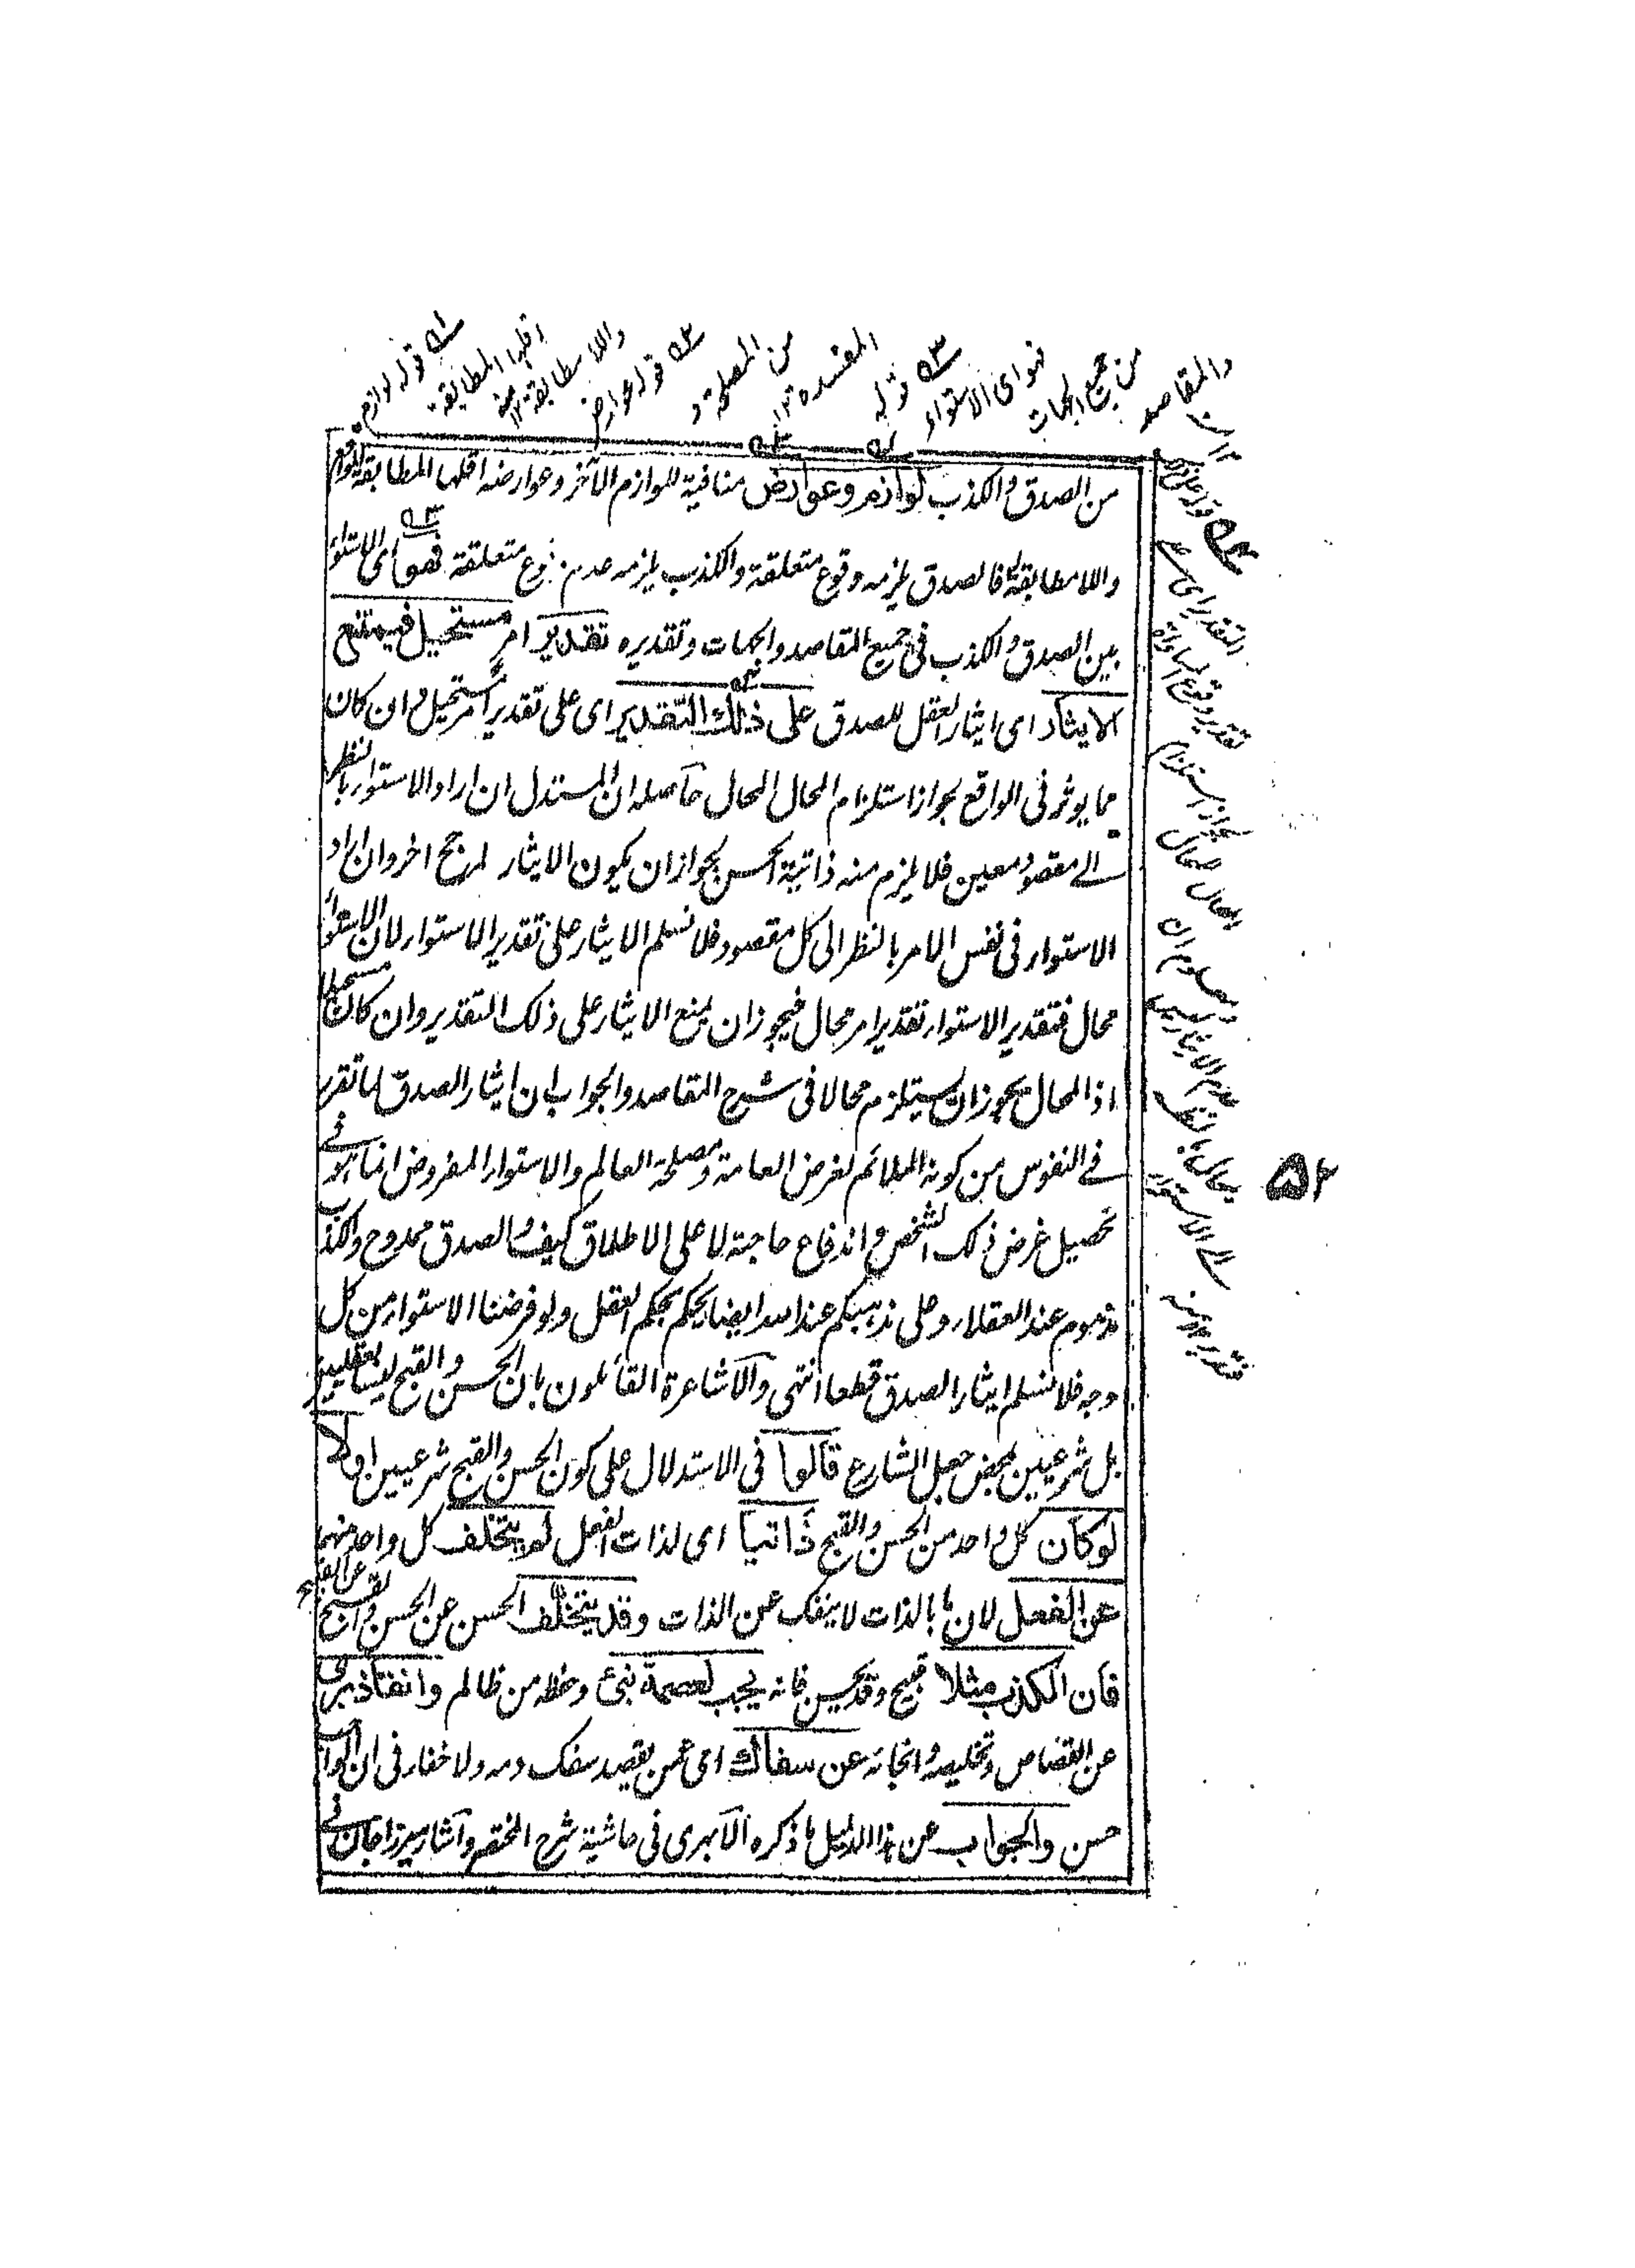 له قوله لوازم
اقلها المطابقة
واللامطابقة ١٢ منه
له قوله عوارض
من المصلحة و
المفسدة ١٢
قوله
فهو اى الاستواء
من جميع الجهات
والمقاصد
من الصدق والكذب لوازم وعوارض منافية للوازم الآخر وعوارضه اقلها المطابقة للواقع
واللامطابقة له فالصدق يلزمه وقوع متعلقة والكذب يلزمه عدم وقوع متعلقة فهو اى الاستواء
بين الصدق والكذب فى جميع المقاصد والجهات وتقديره تقدير امر مستحيل فيمتنع
الايثار اى ايثار العقل للصدق على ذلك التقدير اى على تقدير امر مستحيل وان كان
مما يوثر فى الواقع بجواز استلزام المحال المحال حاصله ان المستدل ان اراد الاستواء بالنظر
الے مقصود معين فلا يلزم منه ذاتية الحسن بجواز ان يكون الايثار لمرجح اخر وان اراد
الاستواء فى نفس الامر بالنظر الى كل مقصود فلا نسلم الايثار على تقدير الاستواء لان الاستواء
محال فتقدير الاستواء تقدير امر محال فيجوز ان يمنع الايثار على ذلك التقدير وان كان مستحيلا
اذ المحال يجوز ان يستلزم محالا فى شرح المقاصد والجواب ان ايثار الصدق لما تقرر
فے النفوس من كونه الملائم لغرض العامة ومصلحة العالم والاستواء المفروض انما هو فے
تحصيل غرض ذلك الشخص واندفاع حاجته لا على الاطلاق كيف والصدق ممدوح والكذب
مذموم عند العقلاء وعلى مذهبكم عند الله ايضا بحكم العقل ولو فرضنا الاستواء من كل
وجه فلا نسلم ايثار الصدق قطعا انتهى والاشاعرة القائلون بان الحسن والقبح ليسا بعقليين
بل شرعيين بمحض جعل الشارع قالوا فى الاستدلال على كون الحسن والقبح شرعيين اولا
لو كان كل واحد من الحسن والقبح ذاتيا اى لذات الفعل لم يتخلف كل واحد منهما
عن الفعل لان ما بالذات لا ينفك عن الذات وقد يتخلف الحسن عن الحسن والقبح عن القبيح
فان الكذب مثلا قبيح وقد يحسن فانه يجب لعصمة نبى وحفظه من ظالم وانقاذ برى
عن القصاص وتخليصه وانجائه عن سفاك اى عمن يقصد سفك دمه ولا خفاء فى ان الواجب
حسن والجواب عن هذا الدليل ما ذكره الابهرى فى حاشية شرح المختصر واشار ميرزا جان فے
التقدير اى على
تقدير وقوع المساواة
لجواز استلزام
المحال المحال
عدم الايثار
٥٢